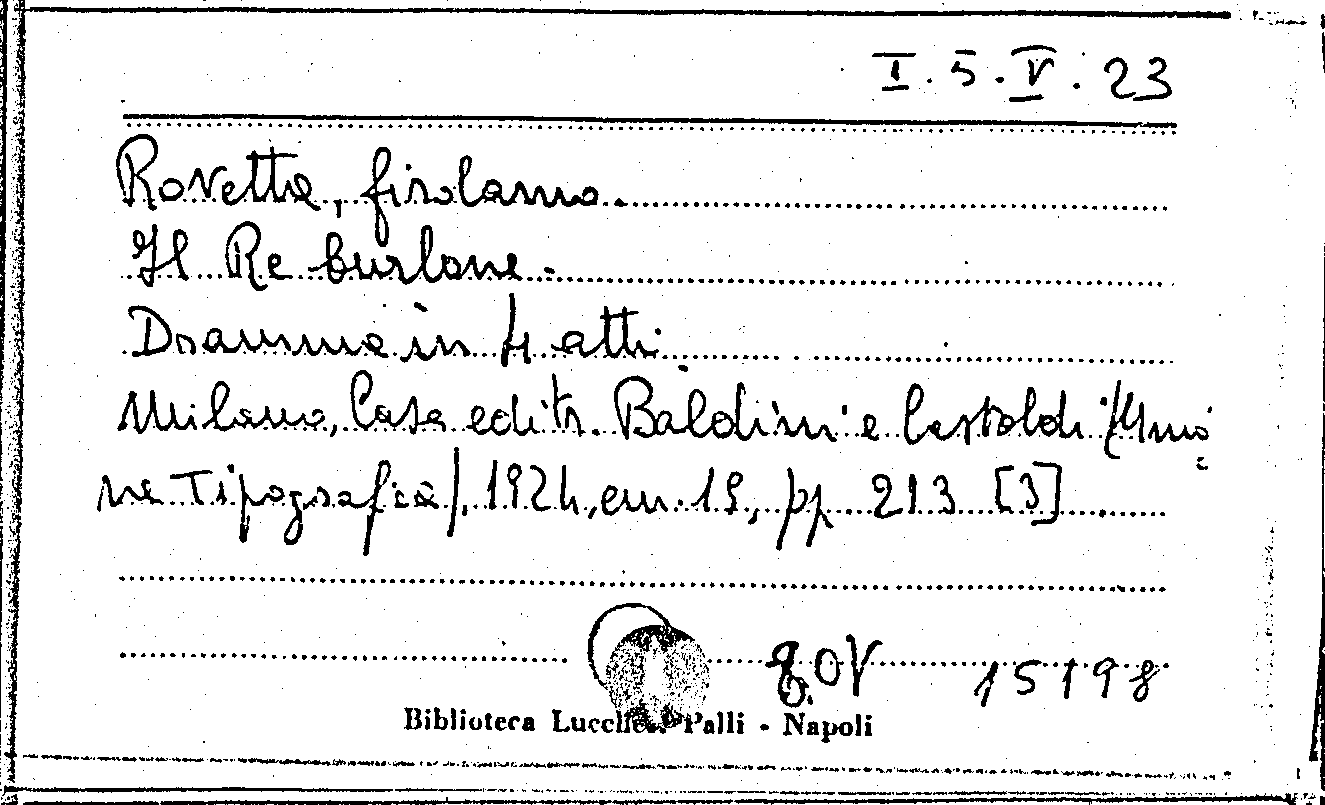 I. 5. V. 23
Rovetta, Girolamo.
Il Re burlone.
Dramma in 4 atti
Milano, Casa editr. Baldini e Castoldi (Unio
ne Tipografica), 1924, cm. 19, pp. 213 [3]
15198
Biblioteca Lucchesi Palli - Napoli